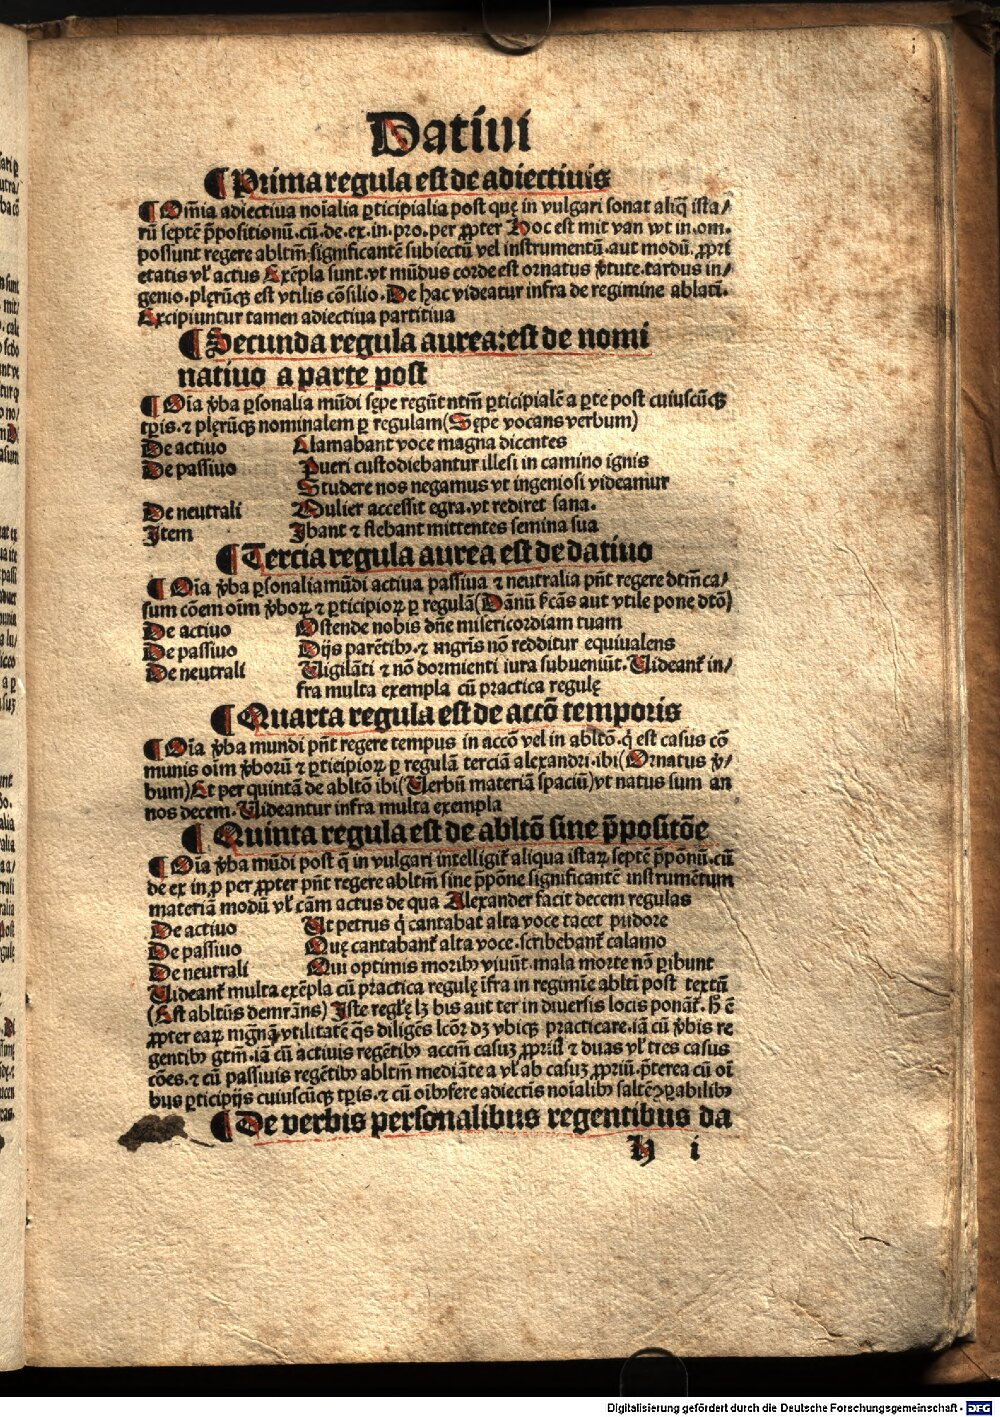 Datiui
¶ Prima regula est de adiectiuis
¶ Om̄ia adiectiua noīalia ꝑticipialia post quę in vulgari sonat aliq̄ ista/
rū septē p̄positionū.cū.de.ex.in.pro.per ꝓpter Hoc est mit van vvt in.om.
possunt regere abltm̄ significantē subiectū vel instrumentū.aut modū.ꝓpri
etatis vl̕ actus Exēpla sunt.vt mūdus corde est ornatus v̕tute.tardus in/
genio.plęrūcꝫ est vtilis cōsilio.De hac videatur infra de regimine ablati.
Excipiuntur tamen adiectiua partitiua
¶ Secunda regula aurea:est de nomi
natiuo a parte post
¶ Oīa v̕ba ꝑsonalia mūdi sępe regūt ntm̄ ꝑticipialē a ꝑte post cuiuscūcꝫ
tꝑis.⁊ plęrūcꝫ nominalem ꝑ regulam(Sępe vocans verbum)
De actiuo Clamabant voce magna dicentes
De passiuo Pueri custodiebantur illesi in camino ignis
Studere nos negamus vt ingeniosi videamur
De neutrali Mulier accessit egra.vt rediret sana.
Item Ibant ⁊ flebant mittentes semina sua
¶ Tercia regula aurea est de datiuo
¶ Oīa v̕ba ꝑsonalia mūdi actiua passiua ⁊ neutralia pn̄t regere dtm̄ ca/
sum cōem oīm v̕boꝝ ⁊ ꝑticipioꝝ ꝑ regulā(Dānū aut vtile pone dtō)
De actiuo Ostende nobis dn̄e misericordiam tuam
De passiuo Dijs parētibꝫ.⁊ mgr̄is nō redditur equiualens
De neutrali Vigilāti ⁊ nō dormienti iura subueniūt.Videant̕ in/
fra multa exempla cū practica regulę
¶ Quarta regula est de accō temporis
¶ Oīa v̕ba mundi pn̄t regere tempus in accō vel in abltō.q̇ est casus cō
munis oīm v̕borū ⁊ ꝑticipioꝝ ꝑ regulā terciā alexandri.ibi(Ornatus v̕/
bum)Et per quintā de abltō ibi(Verbū materiā spaciū)vt natus sum an
nos decem.Videantur infra multa exempla
¶ Quinta regula est de abltō sine p̄positōe
¶ Oīa v̕ba mūdi post q̄ in vulgari intelligit̕ aliqua istaꝝ septē p̄pōnū.cū
de ex in ꝓ per ꝓpter pn̄t regere abltm̄ sine p̄pōne significantē instrumētum
materiā modū vl̕ cām actus de qua Alexander facit decem regulas
De actiuo Vt petrus q̇ cantabat alta voce tacet pudore
De passiuo Quę cantabant̕ alta voce.scribebant̕ calamo
De neutrali Qui optimis moribꝫ viuūt.mala morte nō ꝑibunt
Videant̕ multa exēpla cū practica regulę īfra in regimīe abltī post textū
(Est abltūs demrāns) Iste regl̕ę lꝫ bis aut ter in diuersis locis ponāt̕.h̄ ē
ꝓpter eaꝝ mgnā vtilitatē q̄s diligēs lcōr dꝫ vbicꝫ practicare.iā cū v̕bis re
gentibꝫ gtm̄.iā cū actiuis regētibꝫ accm̄ casuꝫ ꝓpriū ⁊ duas vl̕ tres casus
cōes.⁊ cū passiuis regētibꝫ abltm̄ mediāte a vl̕ ab casuꝫ ꝓpriū.p̄terea cū oī
bus ꝑticipijs cuiuscūcꝫ tꝑis.⁊ cū oībꝫ fere adiectīs noīalibꝫ saltē
¶ De verbis personalibus regentibus da
H i
Digitalisierung gefördert durch die Deutsche Forschungsgemeinschaft - DFG